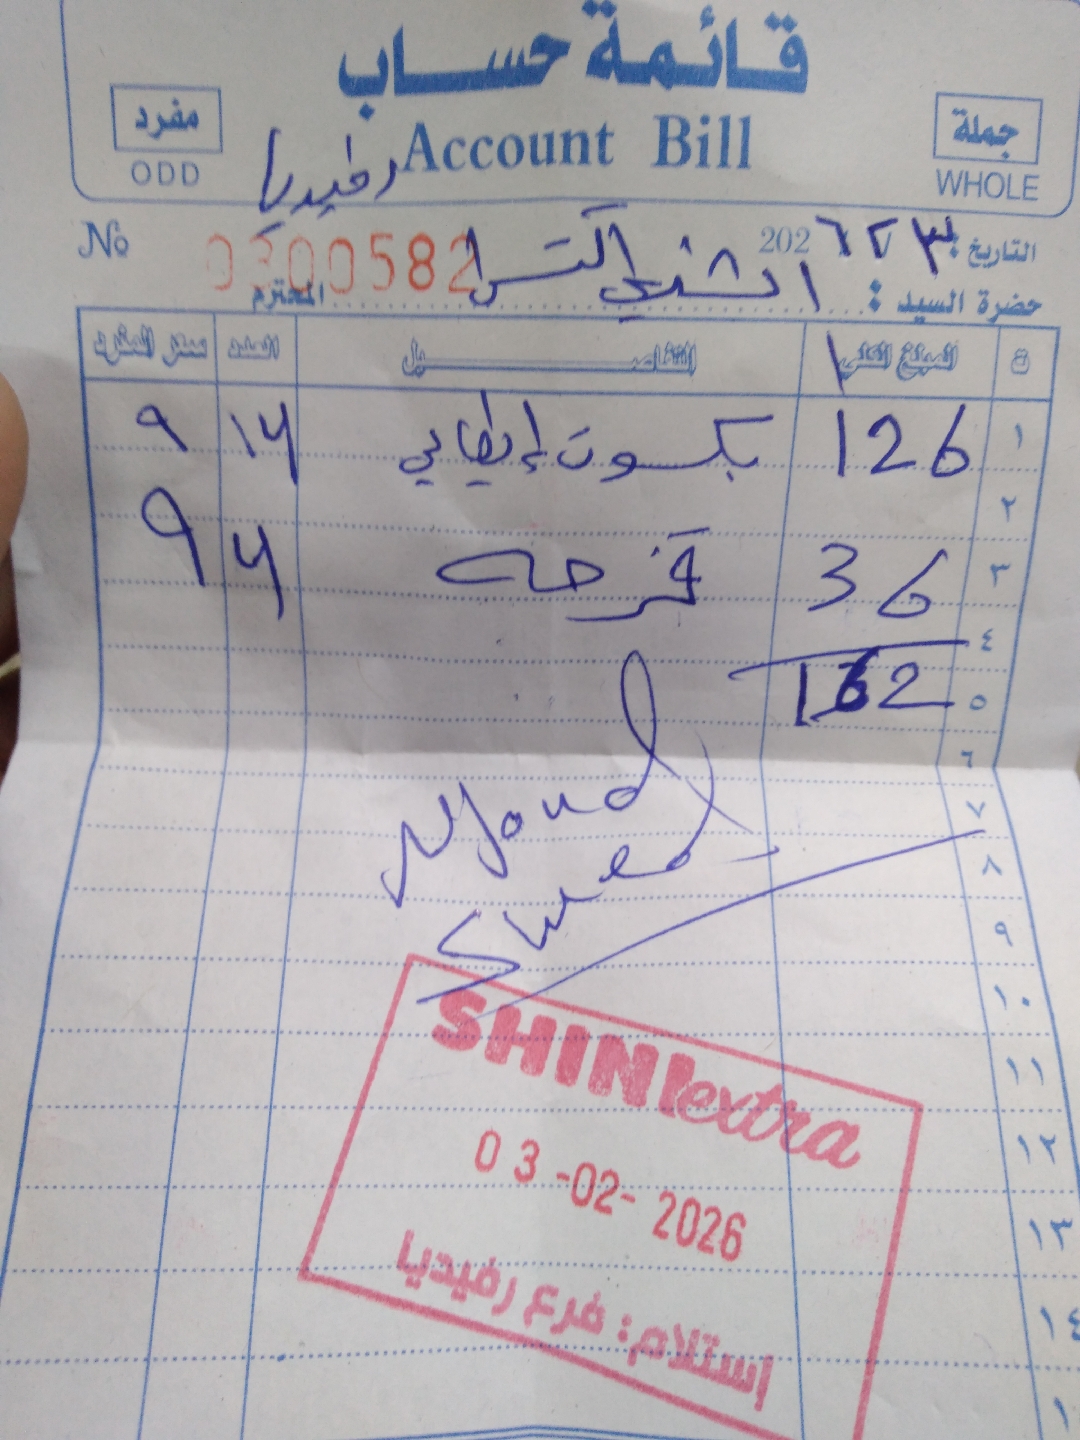 قائمة حساب
Account Bill
جملة
WHOLE
مفرد
ODD
رفيديا
التاريخ: ٣ ٢ 2026
No 0300582
حضرة السيد : الشني اكسترا المحترم
ق المبلغ الكلي التفاصيل العدد سعر المفرد
١ 126 بكسوت إيطالي 14 9
٢
٣ 36 قزحه 4 9
٤
٥ 162
٦
٧
٨
٩
١٠
١١
١٢
١٣
١٤
SHINI extra
03-02-2026
استلام: فرع رفيديا